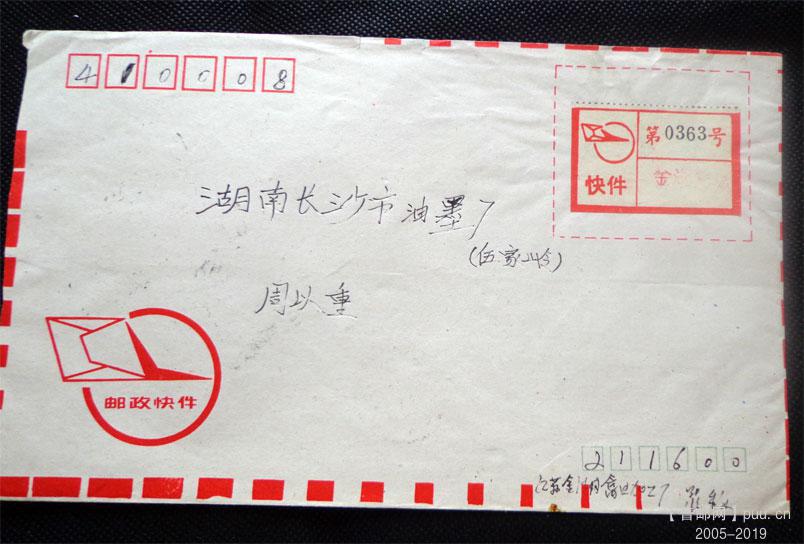 410008
第0363号
快件
金湖
湖南长沙市油墨厂
(伍家岭)
周以重
邮政快件
211600
江苏金湖
puu.cn
2005-2019